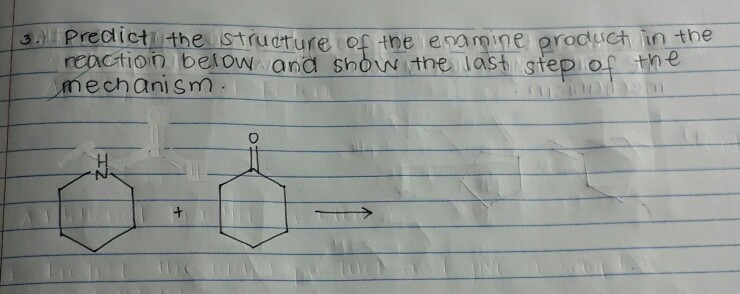 3. Predict the structure of the enamine product in the
reaction below and show the last step of the
mechanism.
O
H
N
+